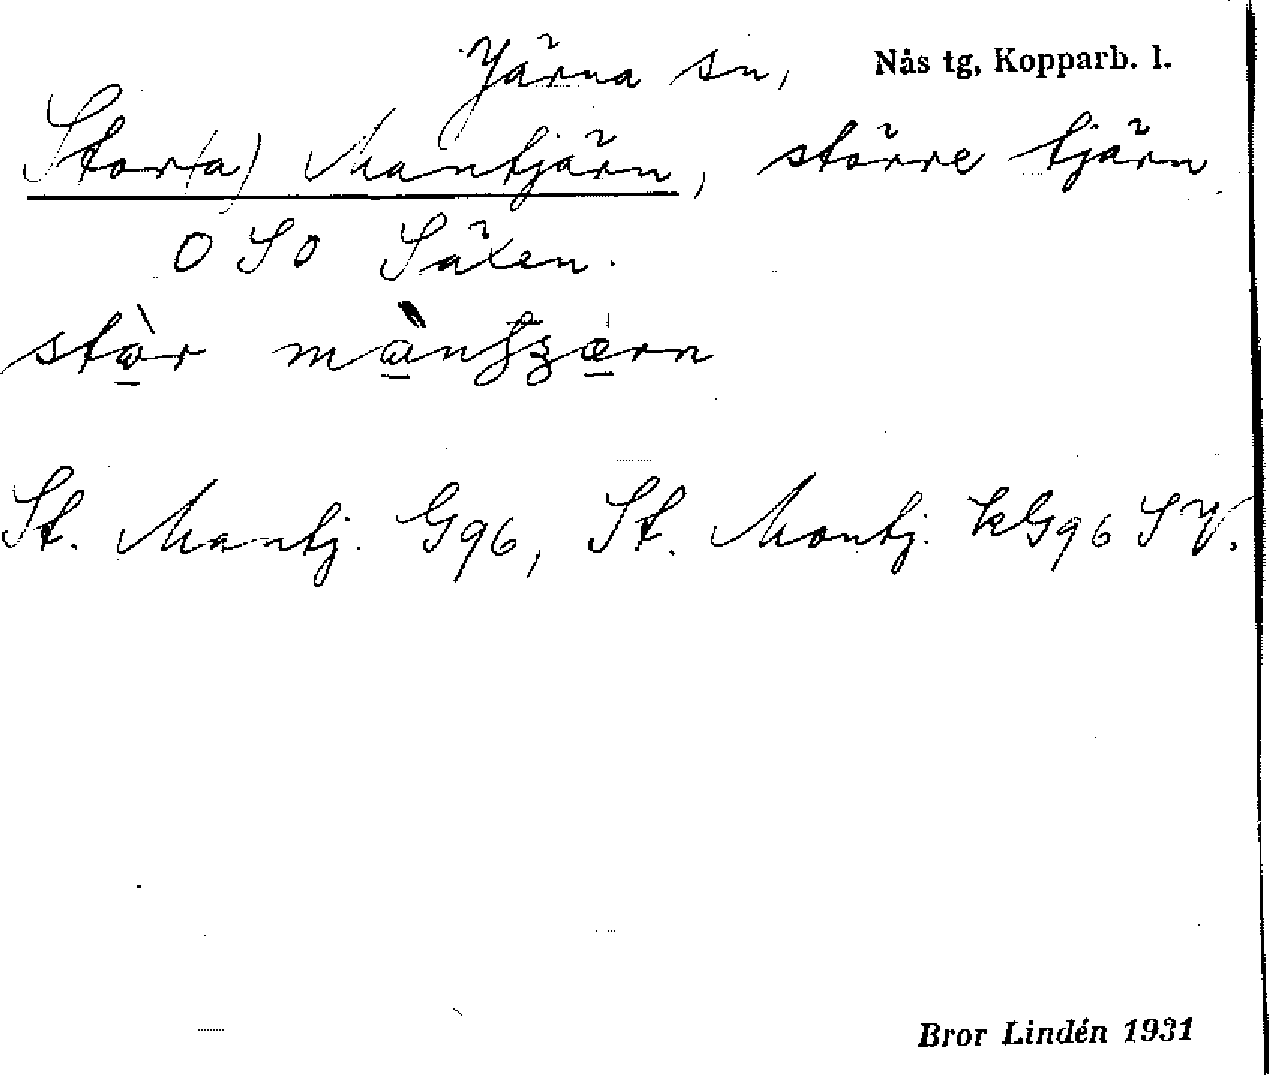 Järna sn, Nås tg, Kopparb. l.
Stor(a) Mantjärn, större tjärn
O S O Säxen.
stor
St. Mantj. G96, St. Mantj. kG96 SV.
Bror Lindén 1931